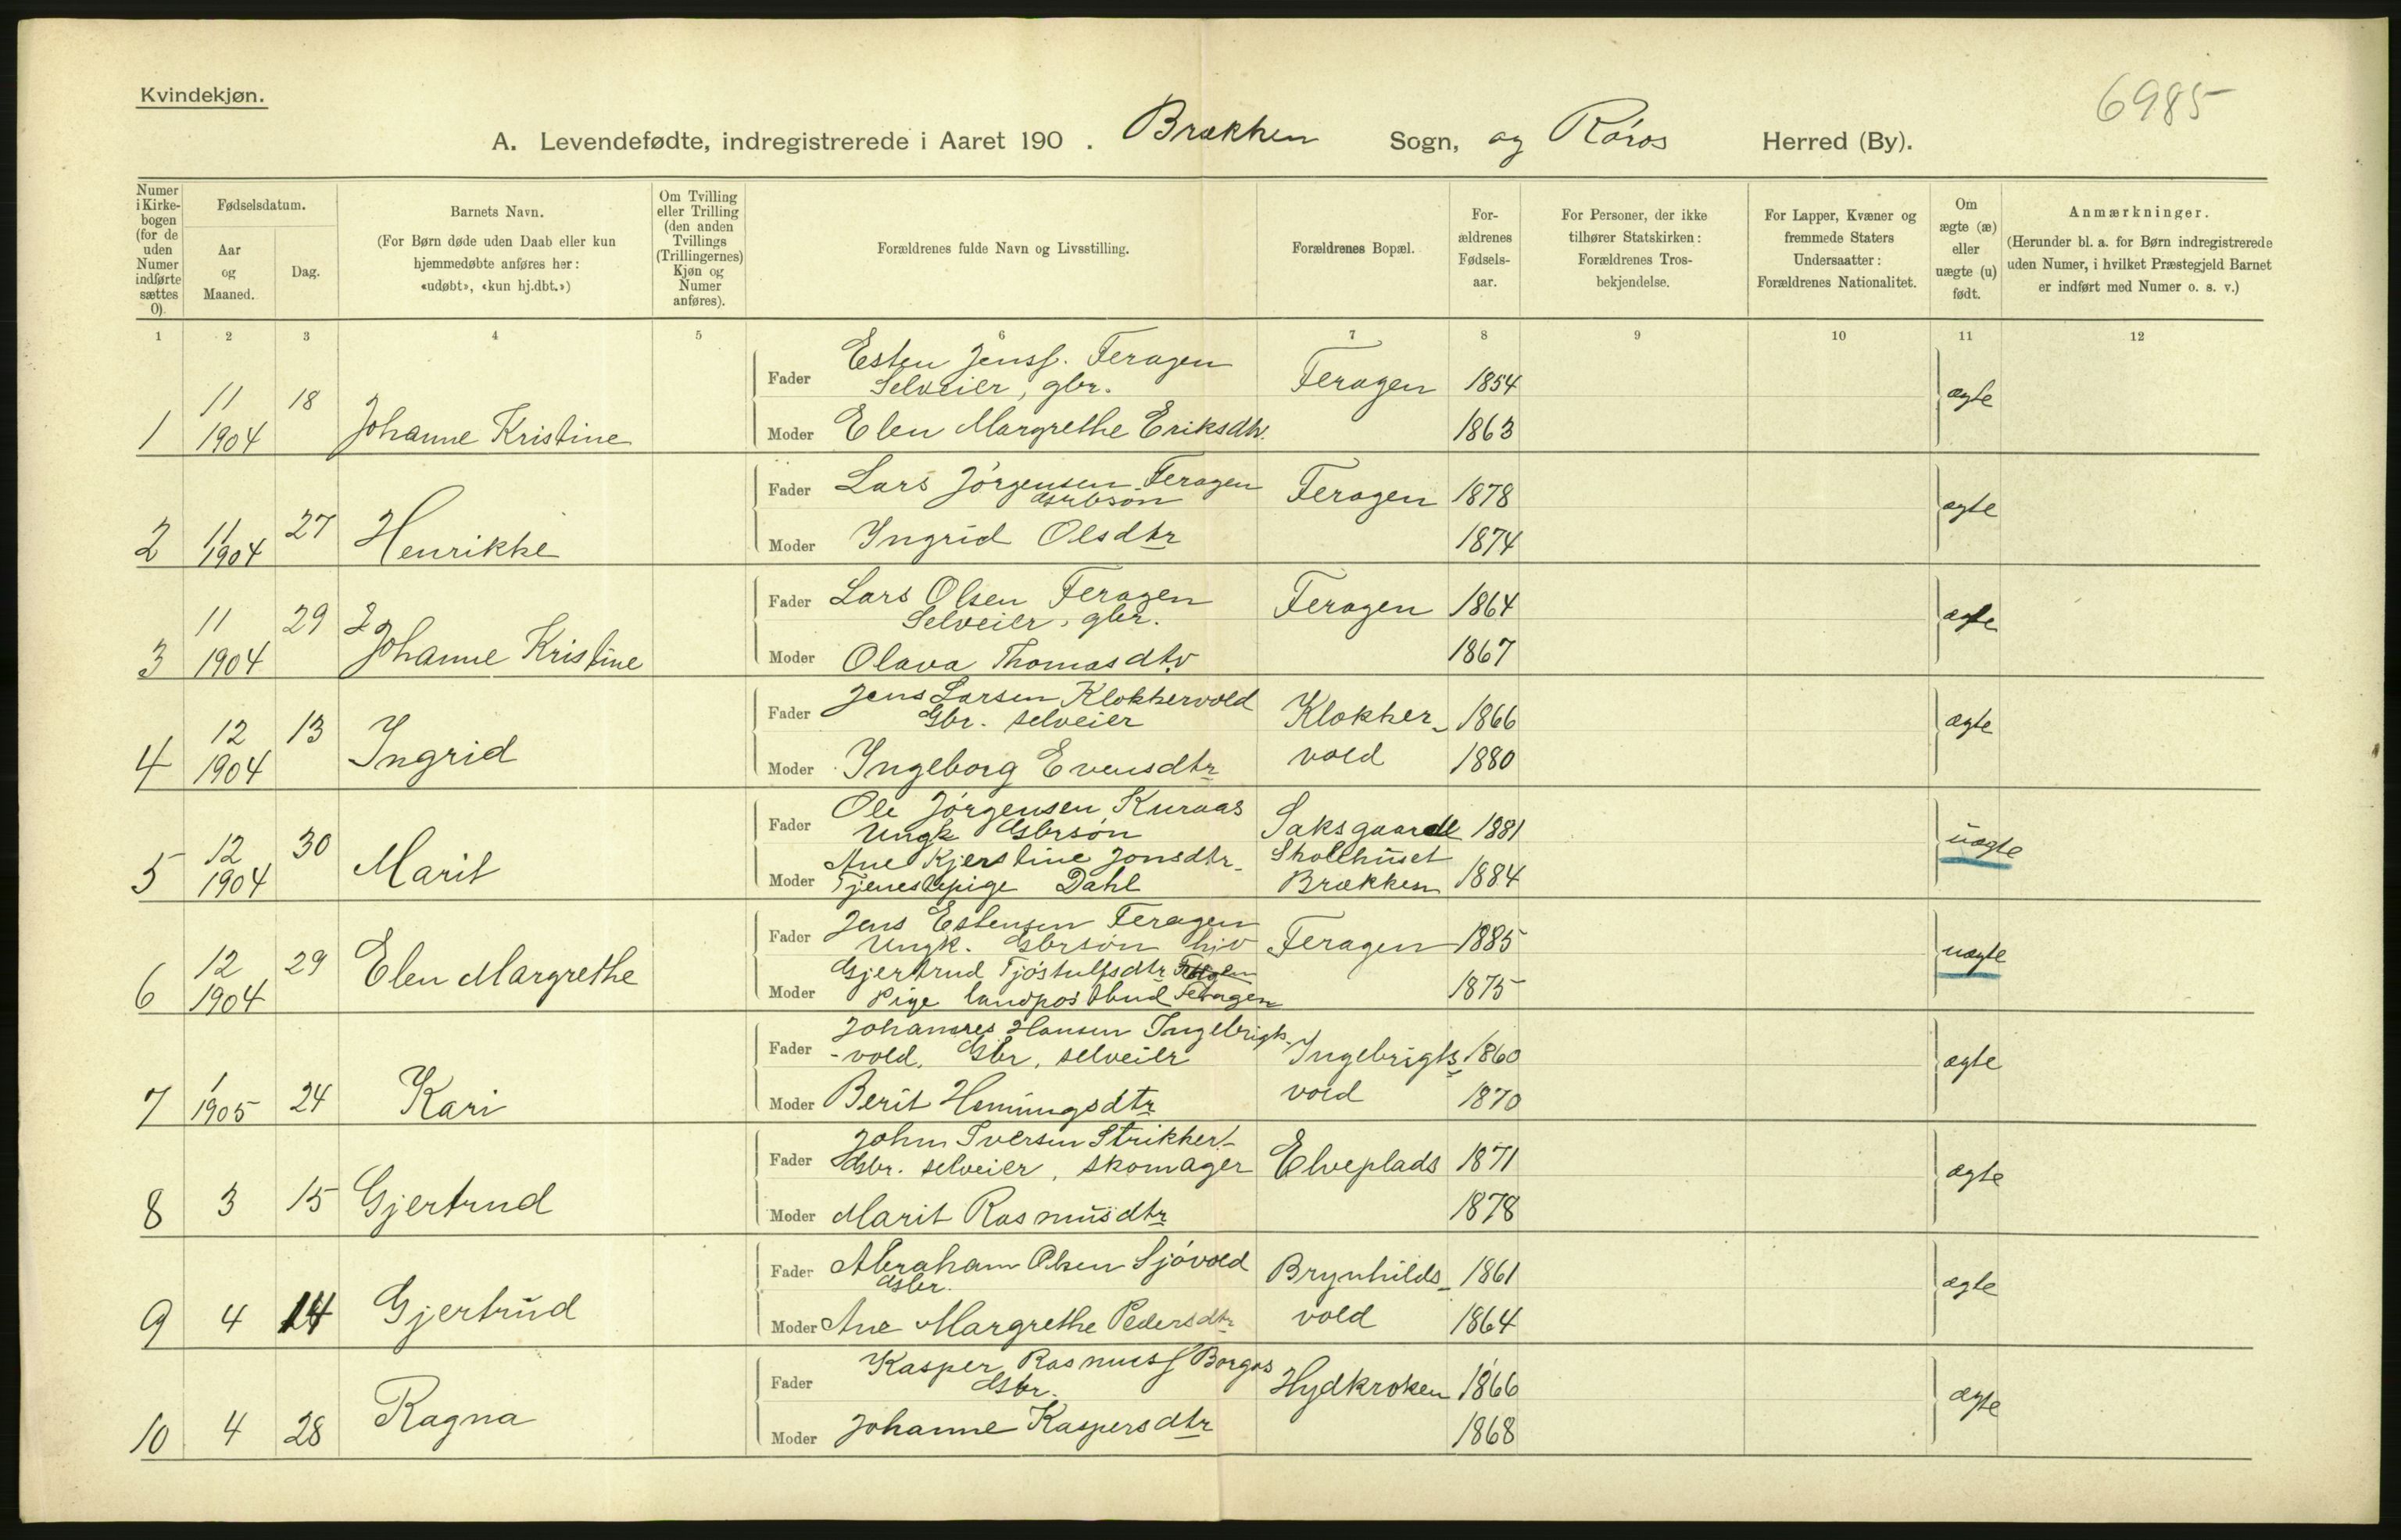 Kvindekjøn.
6985
A. Levendefødte, indregistrerede i Aaret 190 . Brækken Sogn, og Røros Herred (By).
Numer i Kirke-bogen (for de uden Numer indførte sættes 0).
Fødselsdatum.
Aar og Maaned.
Dag.
Barnets Navn.
(For Børn døde uden Daab eller kun hjemmedøbte anføres her: «udøbt», «kun hj.dbt.»)
Om Tvilling eller Trilling (den anden Tvillings (Trillingernes) Kjøn og Numer anføres).
Forældrenes fulde Navn og Livsstilling.
Forældrenes Bopæl.
For-ældrenes Fødsels-aar.
For Personer, der ikke tilhører Statskirken: Forældrenes Tros-bekjendelse.
For Lapper, Kvæner og fremmede Staters Undersaatter: Forældrenes Nationalitet.
Om ægte (æ) eller uægte (u) født.
Anmærkninger.
(Herunder bl. a. for Børn indregistrerede uden Numer, i hvilket Præstegjeld Barnet er indført med Numer o. s. v.)
1 2 3 4 5 6 7 8 9 10 11 12
1 11 1904 18 Johanne Kristine
Fader Esten Jenss. Feragen Selveier, gbr. Feragen 1854 ægte
Moder Elen Margrethe Eriksdtr. 1863
2 11 1904 27 Henrikke
Fader Lars Jørgensen Feragen Gbrsøn Feragen 1878 ægte
Moder Ingrid Olsdtr 1874
3 11 1904 29 Johanne Kristine
Fader Lars Olsen Feragen Selveier, gbr. Feragen 1864 ægte
Moder Olava Thomasdtr 1867
4 12 1904 13 Ingrid
Fader Jens Larsen Klokkervold Gbr. selveier Klokker- 1866 ægte
Moder Ingeborg Evensdtr vold 1880
5 12 1904 30 Marit
Fader Ole Jørgensen Kuraas Ungk Gbrsøn Saksgaard 1881 uægte
Moder Ane Kjerstine Jonsdtr. Tjenestepige Dahl Skolehuset Brækken 1884
6 12 1904 29 Elen Margrethe
Fader Jens Estensen Feragen Ungk. Gbrsøn hjv Feragen 1885 uægte
Moder Gjertrud Tjøstulfsdtr Pige landpostbud Feragen 1875
7 1 1905 24 Kari
Fader Johannes Hansen Ingebrigts-vold, Gbr, selveier Ingebrigts 1860 ægte
Moder Berit Hemingsdtr vold 1870
8 3 15 Gjertrud
Fader John Iversen Strikkert Gbr. selveier, skomager Elveplads 1871 ægte
Moder Marit Rasmusdtr 1878
9 4 14 Gjertrud
Fader Abraham Olsen Sjøvold Gbr. Brynhilds- 1861 ægte
Moder Ane Margrethe Pedersdtr vold 1864
10 4 28 Ragna
Fader Kasper Rasmuss Borgos Gbr. Hydkroken 1866 ægte
Moder Johanne Kaspersdtr 1868